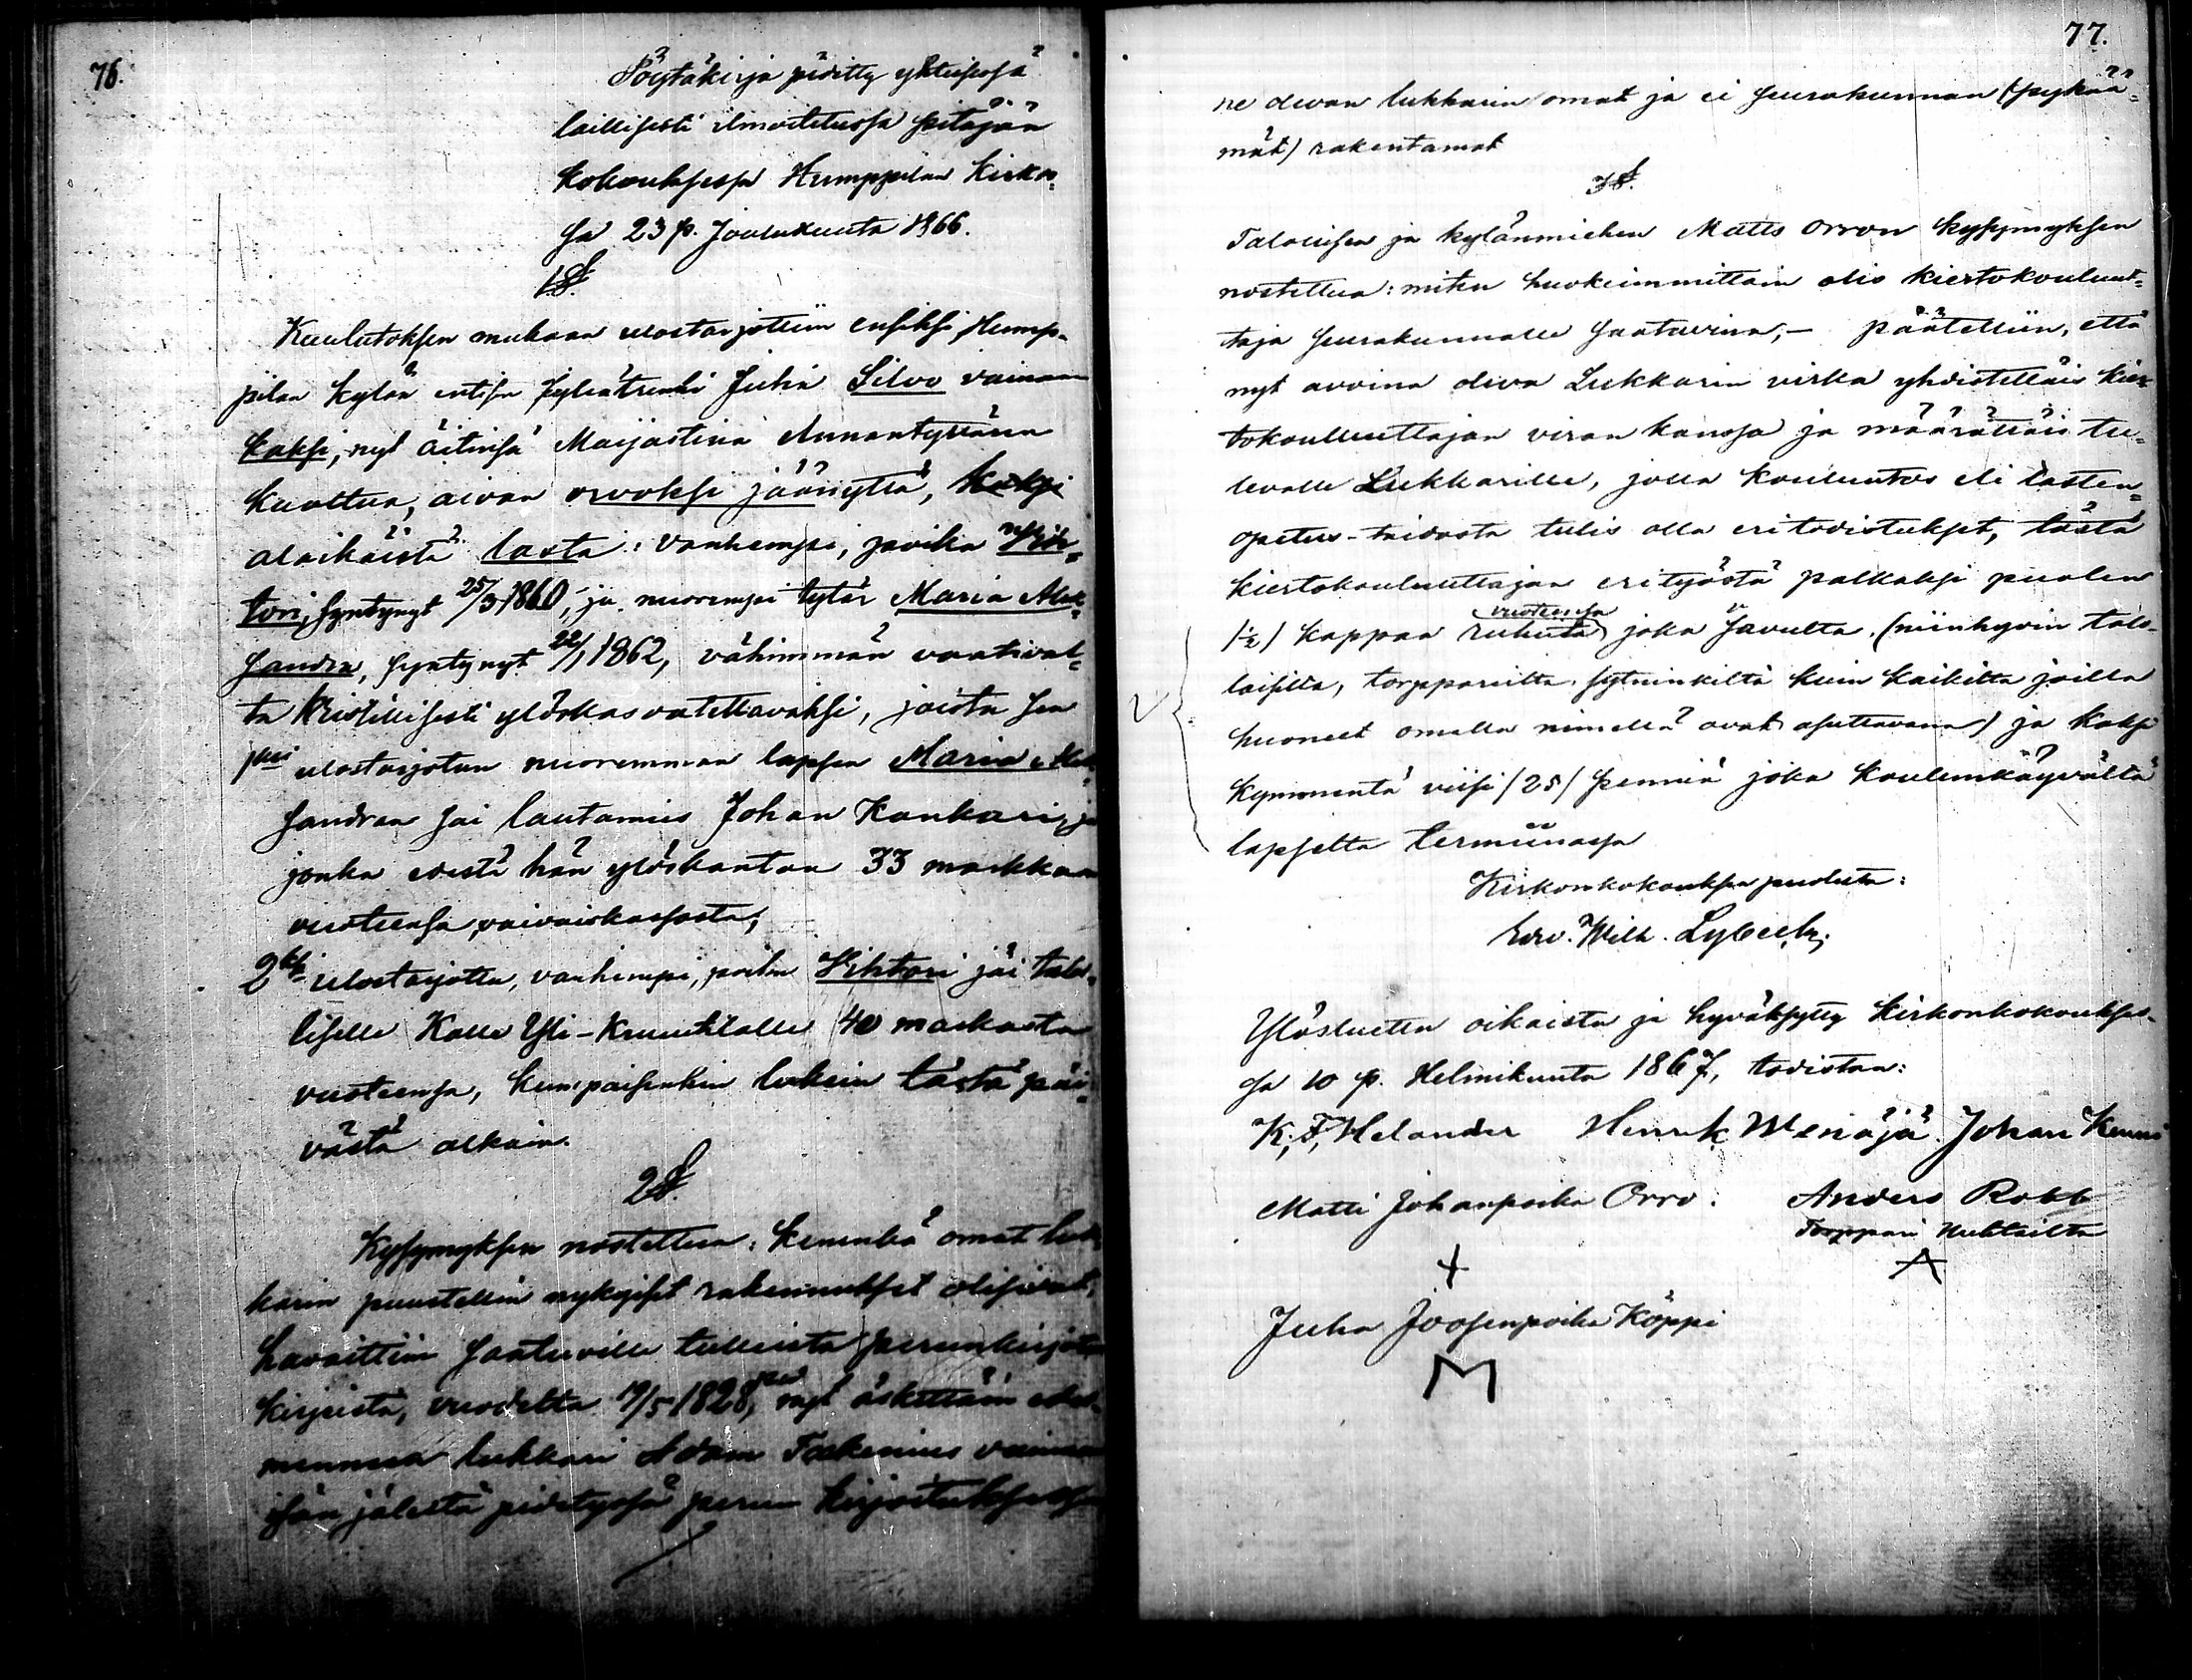 76.
Pöytäkirja pidetty yhteisessä
laillisesti ilmoitetussa pitäjän
kokouksessa Humppilan Kirkos-
sa 23 p. Joulukuuta 1866.
1 §.
Kuulutoksen mukaan ulostarjottiin ensiksi, Hump-
pilan kylän entisen Juha Silvo vainaan
kaksi, nyt äitinsä Maijastina Annantyttären
kuoltua, aivan orvoksi jäänyttä, kaksi
alaikäistä lasta: vanhempi, poika Vih-
tori, syntynyt 25/3 1860, ja nuorempi tytär Maria Alek-
sandra, syntynyt 22/1 1862, vähimmän vaatival-
ta kristillisesti ylöskasvatettavaksi, joista sen
1ksi ulostarjotun nuoremman lapsen Maria Alek-
sandran sai lautamies Johan Kankari,
jonka edestä hän ylöskantaa 33 markkaa
vuoteensa vaivaiskassasta;
2ksi ulostarjottu, vanhempi, poika Vihtori jäi talol-
liselle Kalle Yli-Kruutilalle 40 markasta
vuoteensa, kumpaisenkin lukein tästä päi-
västä alkain.
2 §.
Kysymyksen nostettua: kenenkä omat luk-
karin puustellin nykyiset rakennukset olisivat,
havaittiin saatuville tulleista perunkirjotus
kirjeistä, vuodelta 19/5 1828, nyt äskettäin edes-
mennessä lukkari Adam Takenius vainaan
isän jälestä pidetyssä perun kirjoituksessa
77.
ne olevan lukkarin omat ja ei seurakunnan (pykää-
mät) rakentamat
3 §.
Talollisen ja kylänmiehen Matts Orron kysymyksen
nostettua: miten huokeimmittain olis kiertokoulunt-
taja seurakunnalle saatavina, — päätettiin, että
nyt avoina oleva Lukkarin virka yhdistettäis kier-
tokouluuttajan viran kanssa ja määrättäis tu-
levalle Lukkarille, jolla kouluutus eli lasten-
opetus-taidosta tulis olla eri todistukset, tästä
kiertokouluuttajan eri työstä palkaksi puolen
(½) kappaa rukiita vuoteensa joka savulta, (niinhyvin talo-
laisilta, torppareilta, sytninkiltä kuin kaikilta joilla
huoneet omalla nimellä ovat asuttavana) ja kaksi
kymmentä viisi (25) penniä joka koulunkäyvältä
lapselta termiinassa
Kirkonkokouksen puolesta:
Edv. Wilh. Lybeck;
Ylösluettu oikaistu ja hyväksytty kirkonkokoukses-
sa 10 p. Helmikuuta 1867, todistaa:
K. F. Helander Henrik Wenäjä. Johan Kenni
Matti Johanpoika Orro. Anders Robb
Torppari Huhtailta
Juha Joosenpoika Köppi